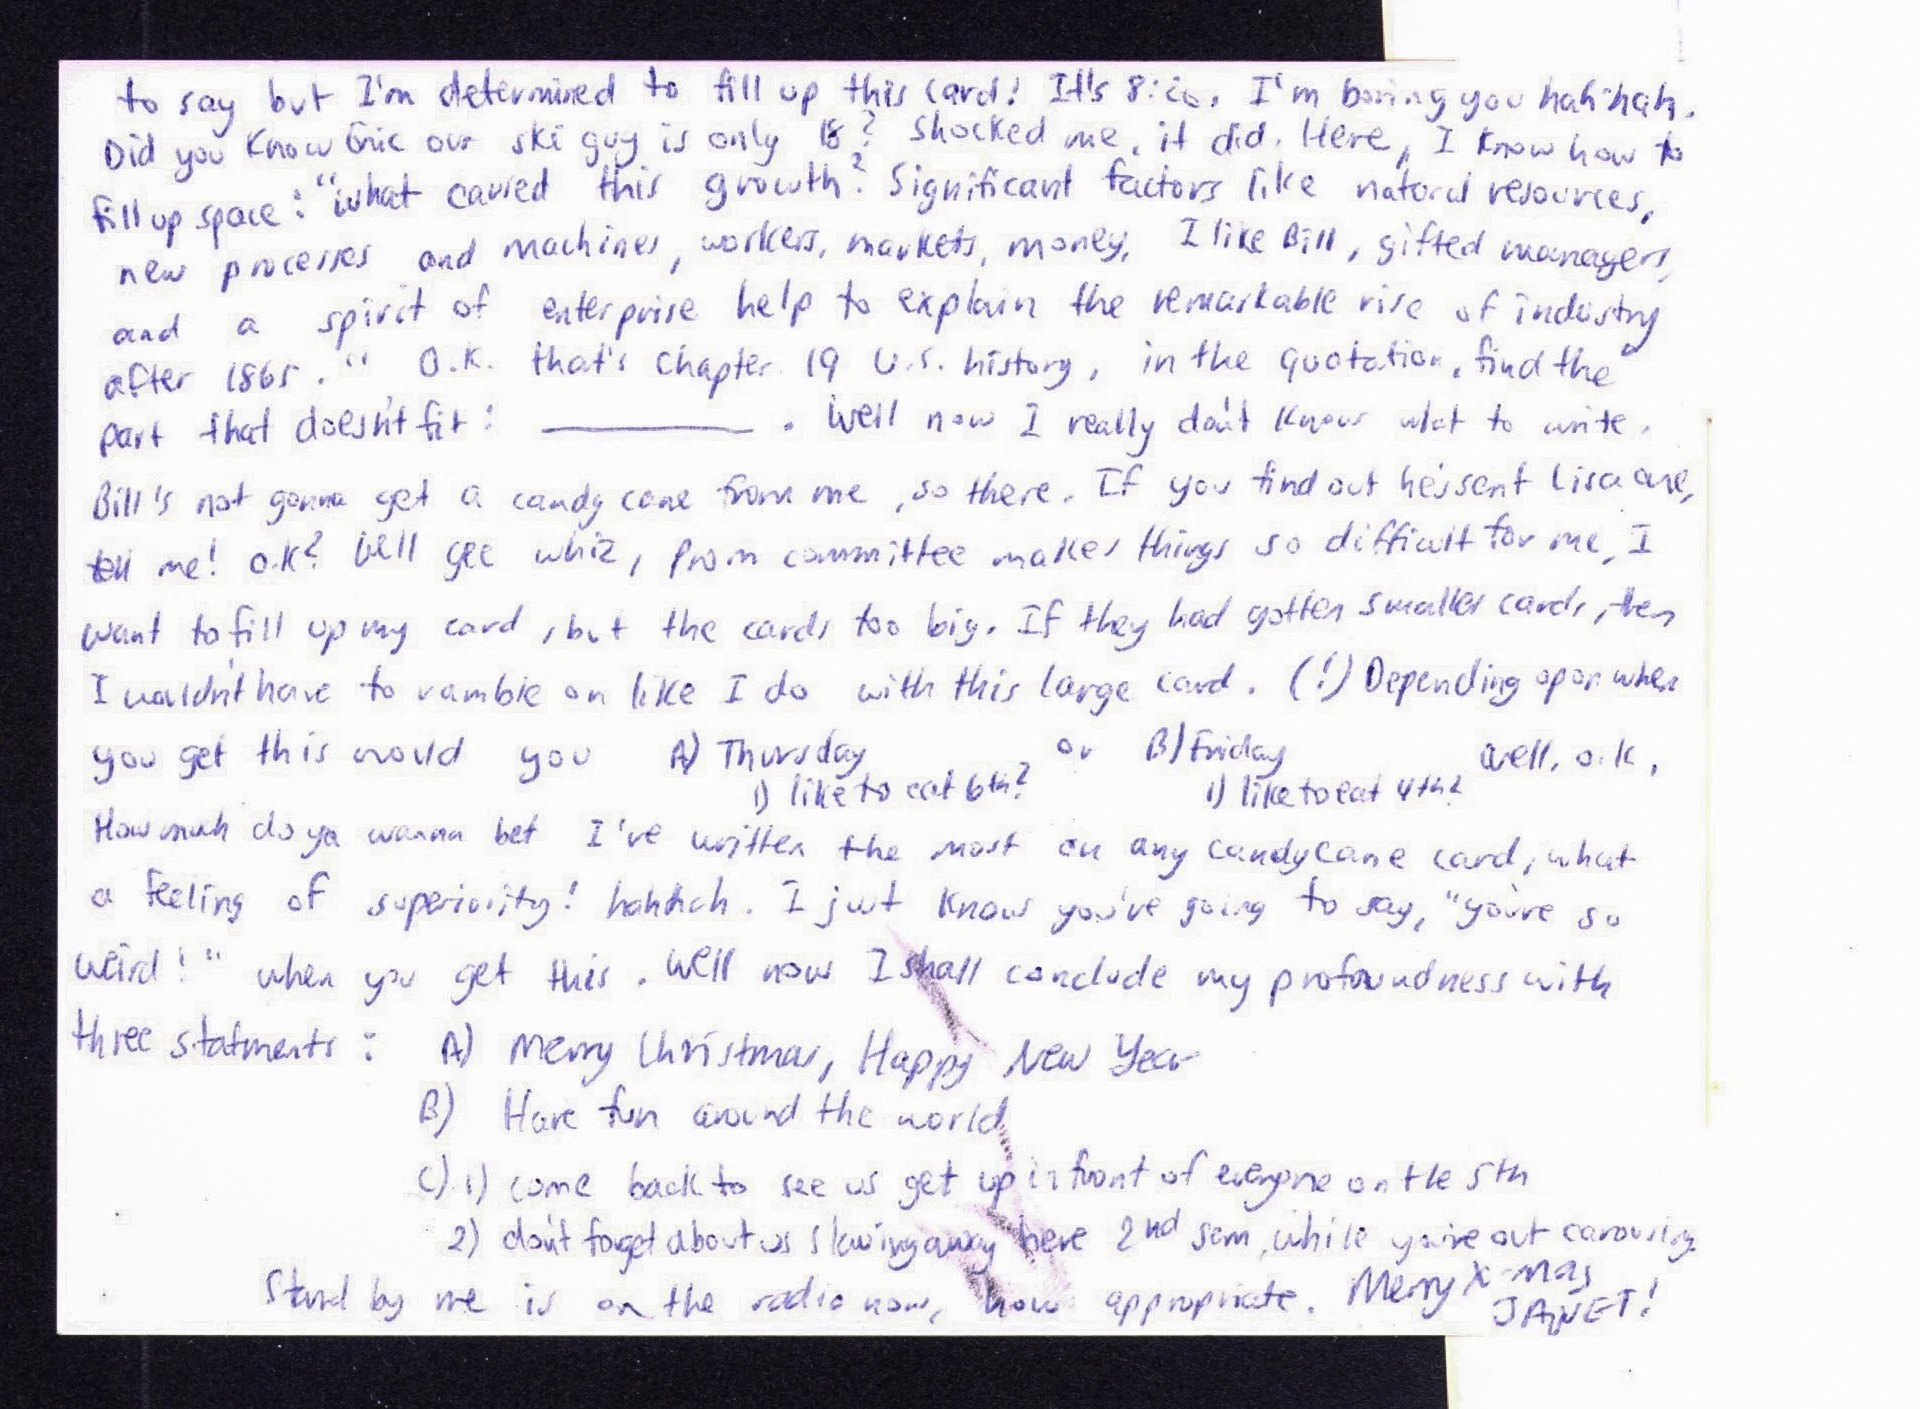 to say but I'm determined to fill up this card! It's 8:20. I'm boring you hah hah.
Did you know Eric our ski guy is only 18? Shocked me, it did. Here, I know how to
fill up space: "what caused this growth? Significant factors like natural resources,
new processes and machines, workers, markets, money, I like Bill, gifted managers,
and a spirit of enterprise help to explain the remarkable rise of industry
after 1865." O.K. that's Chapter 19 U.S. history, in the quotation, find the
part that doesn't fit: ________. Well now I really don't know what to write.
Bill's not gonna get a candy cane from me, so there. If you find out he's sent Lisa one,
tell me! o.k? Well gee whiz, prom committee makes things so difficult for me, I
want to fill up my card, but the cards too big. If they had gotten smaller cards, then
I wouldn't have to ramble on like I do with this large card. (!) Depending upon when
you get this would you A) Thursday or B) Friday well, o.k,
1) like to eat 6th? 1) like to eat 4th?
How much do ya wanna bet I've written the most on any candycane card, what
a feeling of superiority! hahhah. I just know you've going to say, "you're so
weird!" when you get this. Well now I shall conclude my profoundness with
three statments: A) Merry Christmas, Happy New Year
B) Have fun around the world
C) 1) come back to see us get up in front of everyone on the 5th
2) don't forget about us slaving away here 2nd sem, while you're out carousing.
Stand by me is on the radio now, how appropriate. Merry X-mas
JANET!